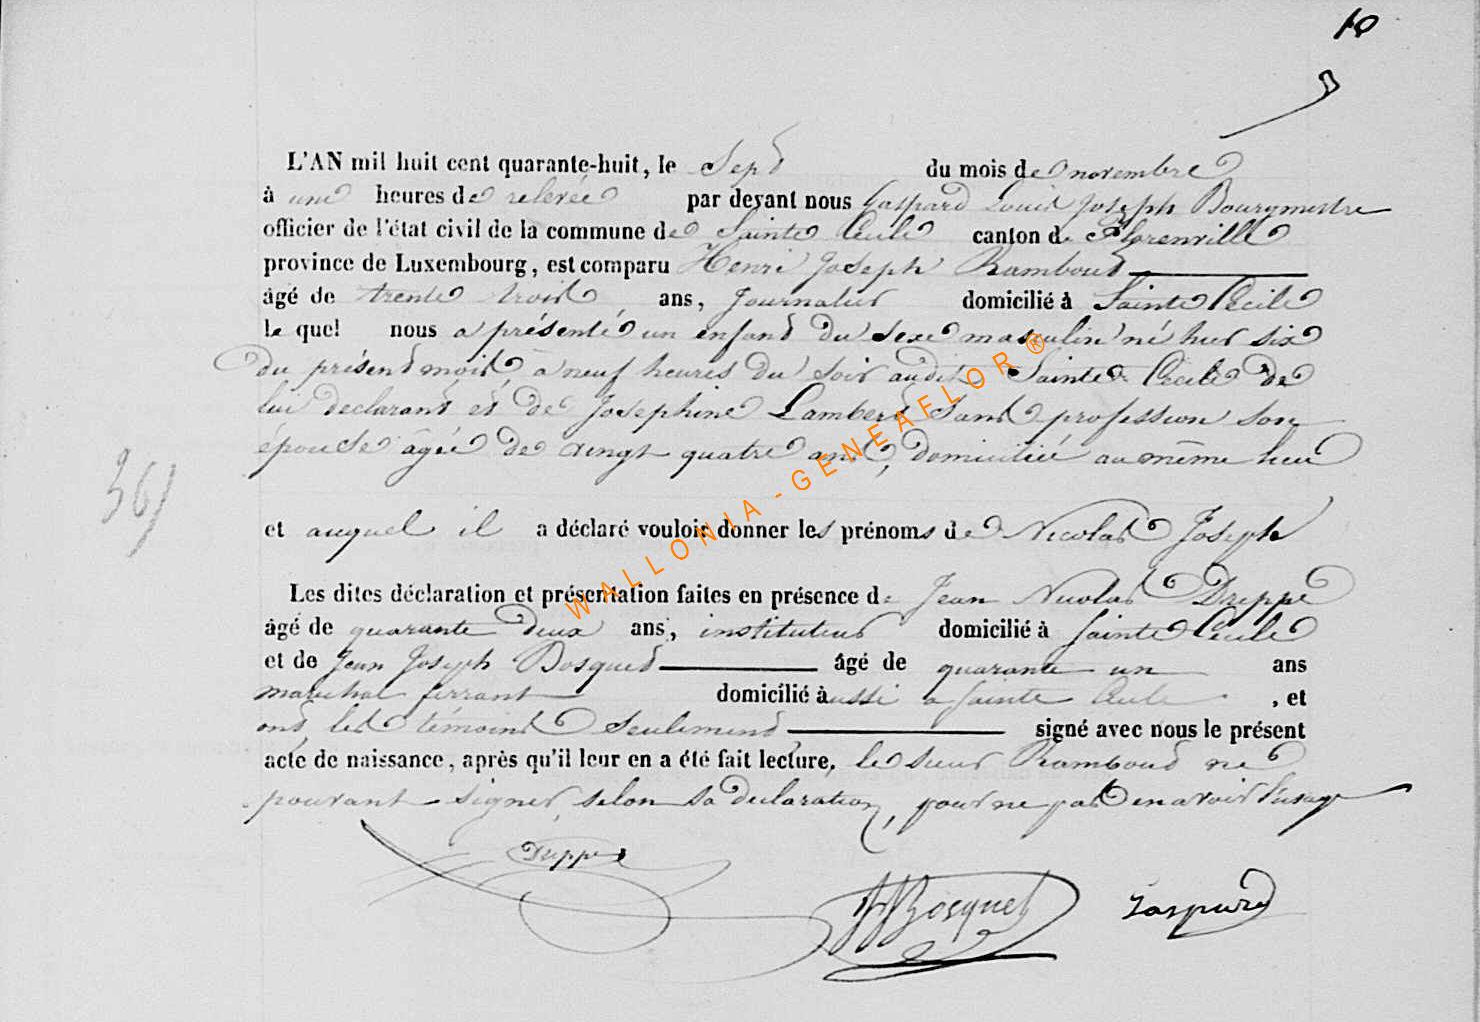 10
L'AN mil huit cent quarante-huit, le Sept du mois de novembre
à une heures de relevée par devant nous Gaspard Louis Joseph Bourgmestre
officier de l'état civil de la commune de Sainte Cécile canton de Florenville
province de Luxembourg, est comparu Henri Joseph Rambout
âgé de trente trois ans, Journalier domicilié à Sainte Cécile
le quel nous a présenté un enfant du sexe masculin né hier six
du présent mois, à neuf heures du soir audit Sainte Cécile de
lui déclarant et de Josephine Lambert sans profession son
épouse âgée de vingt quatre ans, domiciliée au même lieu
361
et auquel il a déclaré vouloir donner les prénoms de Nicolas Joseph
Les dites déclaration et présentation faites en présence de Jean Nicolas Dreppe
âgé de quarante deux ans, instituteur domicilié à Sainte Cécile
et de Jean Joseph Bosquet âgé de quarante un ans
maréchal ferrant domicilié à aussi a Sainte Cécile , et
ont les témoins seulement signé avec nous le présent
acte de naissance, après qu'il leur en a été fait lecture, le sieur Rambout ne
pouvant signer, selon sa déclaration, pour ne pas en avoir l'usage
Dreppe
JJBosquet
Gaspard
WALLONIA-GENEAFLOR®